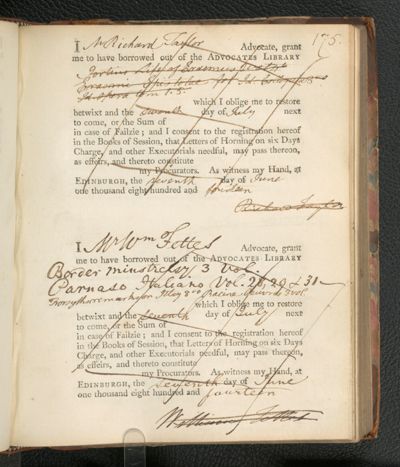 175.
I Mr Richard Taylor Advocate, grant
me to have borrowed out of the ADVOCATES LIBRARY
Jortins Life of Erasmus
Erasmi
which I oblige me to restore
betwixt and the seventh day of July next
to come, or the Sum of
in case of Failzie; and I consent to the registration hereof
in the Books of Session, that Letters of Horning on six Days
Charge, and other Executorials needful, may pass thereon,
as effeirs, and thereto constitute
my Procurators. As witness my Hand, at
EDINBURGH, the seventh day of June
one thousand eight hundred and fourteen
Richard Taylor
I Mr Wm Fettes Advocate, grant
me to have borrowed out of the ADVOCATES LIBRARY
Border minstrelsy 3 Vol.
Parnaso Italiano Vol. 28, 29 & 31
which I oblige me to restore
betwixt and the seventh day of July next
to come, or the Sum of
in case of Failzie; and I consent to the registration hereof
in the Books of Session, that Letters of Horning on six Days
Charge, and other Executorials needful, may pass thereon,
as effeirs, and thereto constitute
my Procurators. As witness my Hand, at
EDINBURGH, the seventh day of June
one thousand eight hundred and fourteen
William Fettes